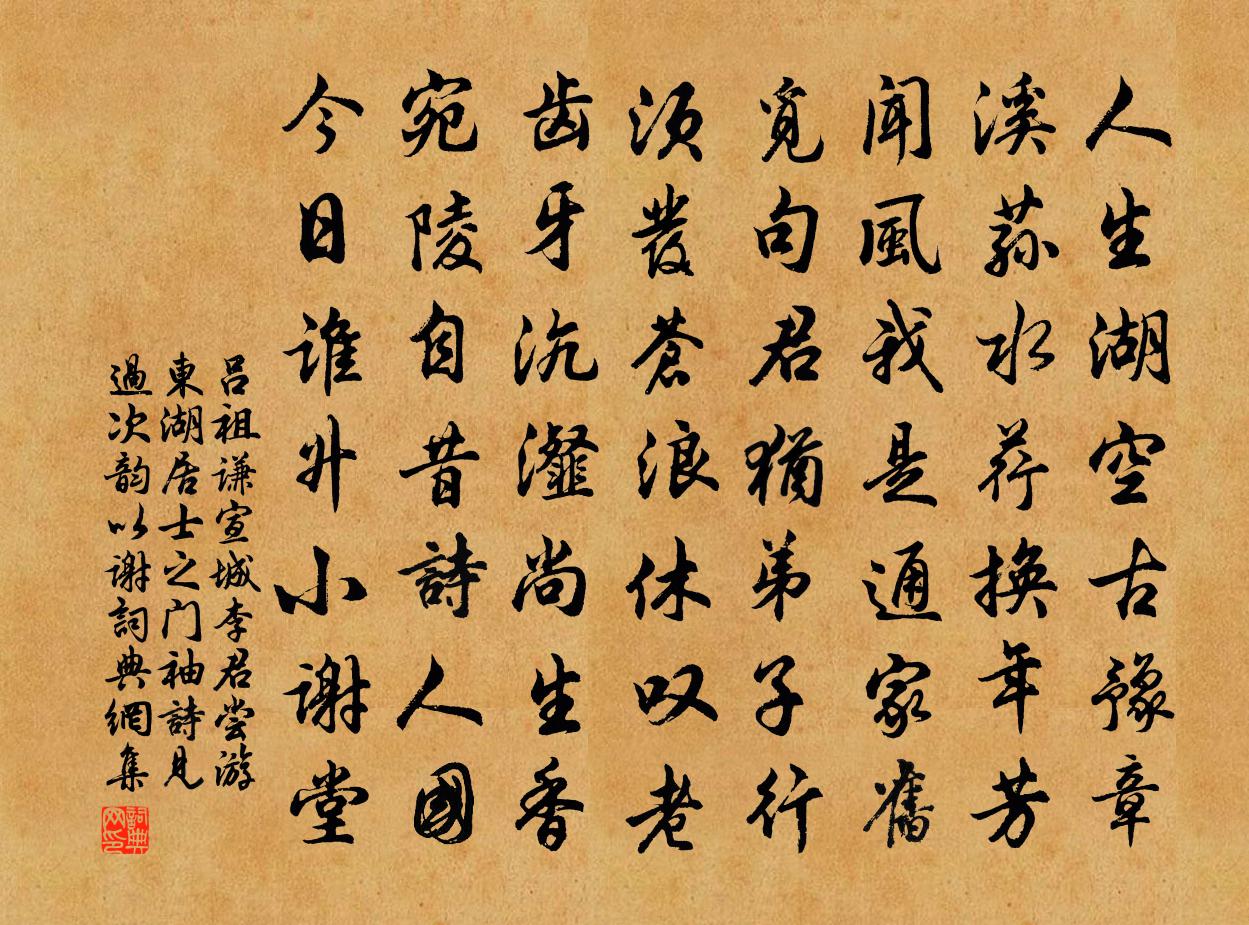 人生湖空古豫章
溪蓀水荇換年芳
聞風我是通家舊
覓句君猶弟子行
須發蒼浪休叹老
齿牙沆瀣尚生香
宛陵自昔詩人國
今日谁升小谢堂
吕祖谦宣城李君尝游
東湖居士之门袖詩見
過次韵以谢詞典網集
詞典网印